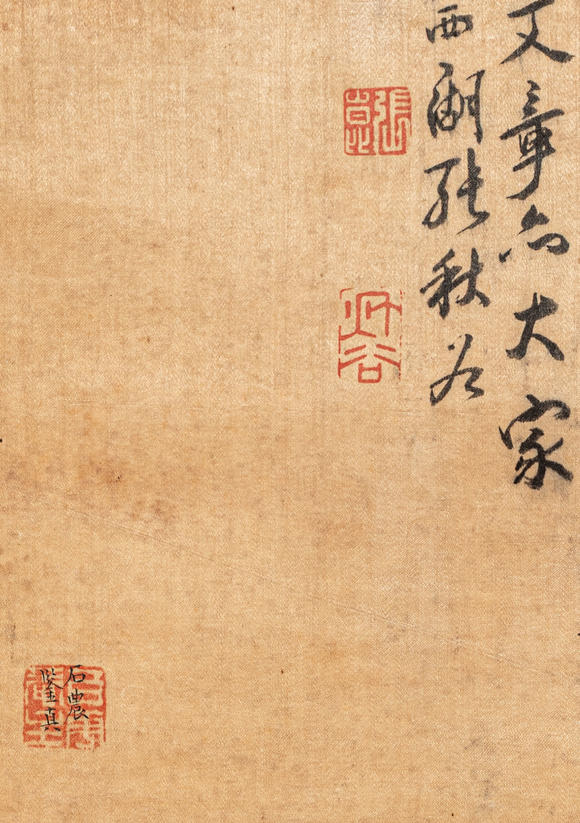 文章大家
西湖張秋谷
張崑
秋谷
石農
鑒真